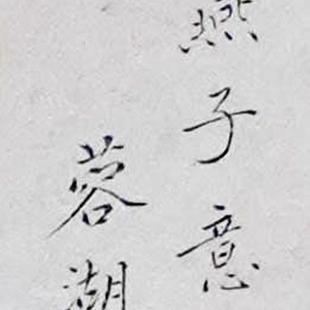 燕子意
蓉湖